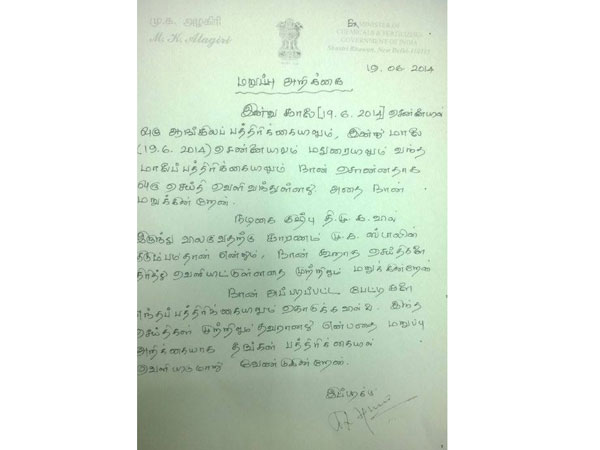 மு.க. அழகிரி
M. K. Alagiri
Ex MINISTER OF
CHEMICALS & FERTILIZERS
GOVERNMENT OF INDIA
Shastri Bhawan, New Delhi-110115
19.06.2014
மறுப்பு அறிக்கை
இன்று காலை [19.6.2014] சென்னையில்
ஒரு ஆங்கிலப் பத்திரிக்கையிலும், இன்று மாலை
(19.6.2014) சென்னையிலும் மதுரையிலும் வந்த
மாலைப் பத்திரிக்கையிலும் நான் சொன்னதாக
ஒரு செய்தி வெளிவந்துள்ளது அதை நான்
மறுக்கின்றேன்.
நடிகை குஷ்பு தி.மு.க.வில்
இருந்து விலகுவதற்கு காரணம் மு.க. ஸ்டாலின்
குடும்பம்தான் என்றும், நான் கூறாத செய்திகளை
திரித்து வெளியிட்டுள்ளதை முற்றிலும் மறுக்கின்றேன்
நான் அப்படிப்பட்ட பேட்டிகளை
எந்தப் பத்திரிக்கையிலும் கொடுக்கவில்லை. இந்த
செய்திகள் முற்றிலும் தவறானது என்பதை மறுப்பு
அறிக்கையாக தங்கள் பத்திரிக்கையில்
வெளியிடுமாறு வேண்டுகின்றேன்.
இப்படிக்கு